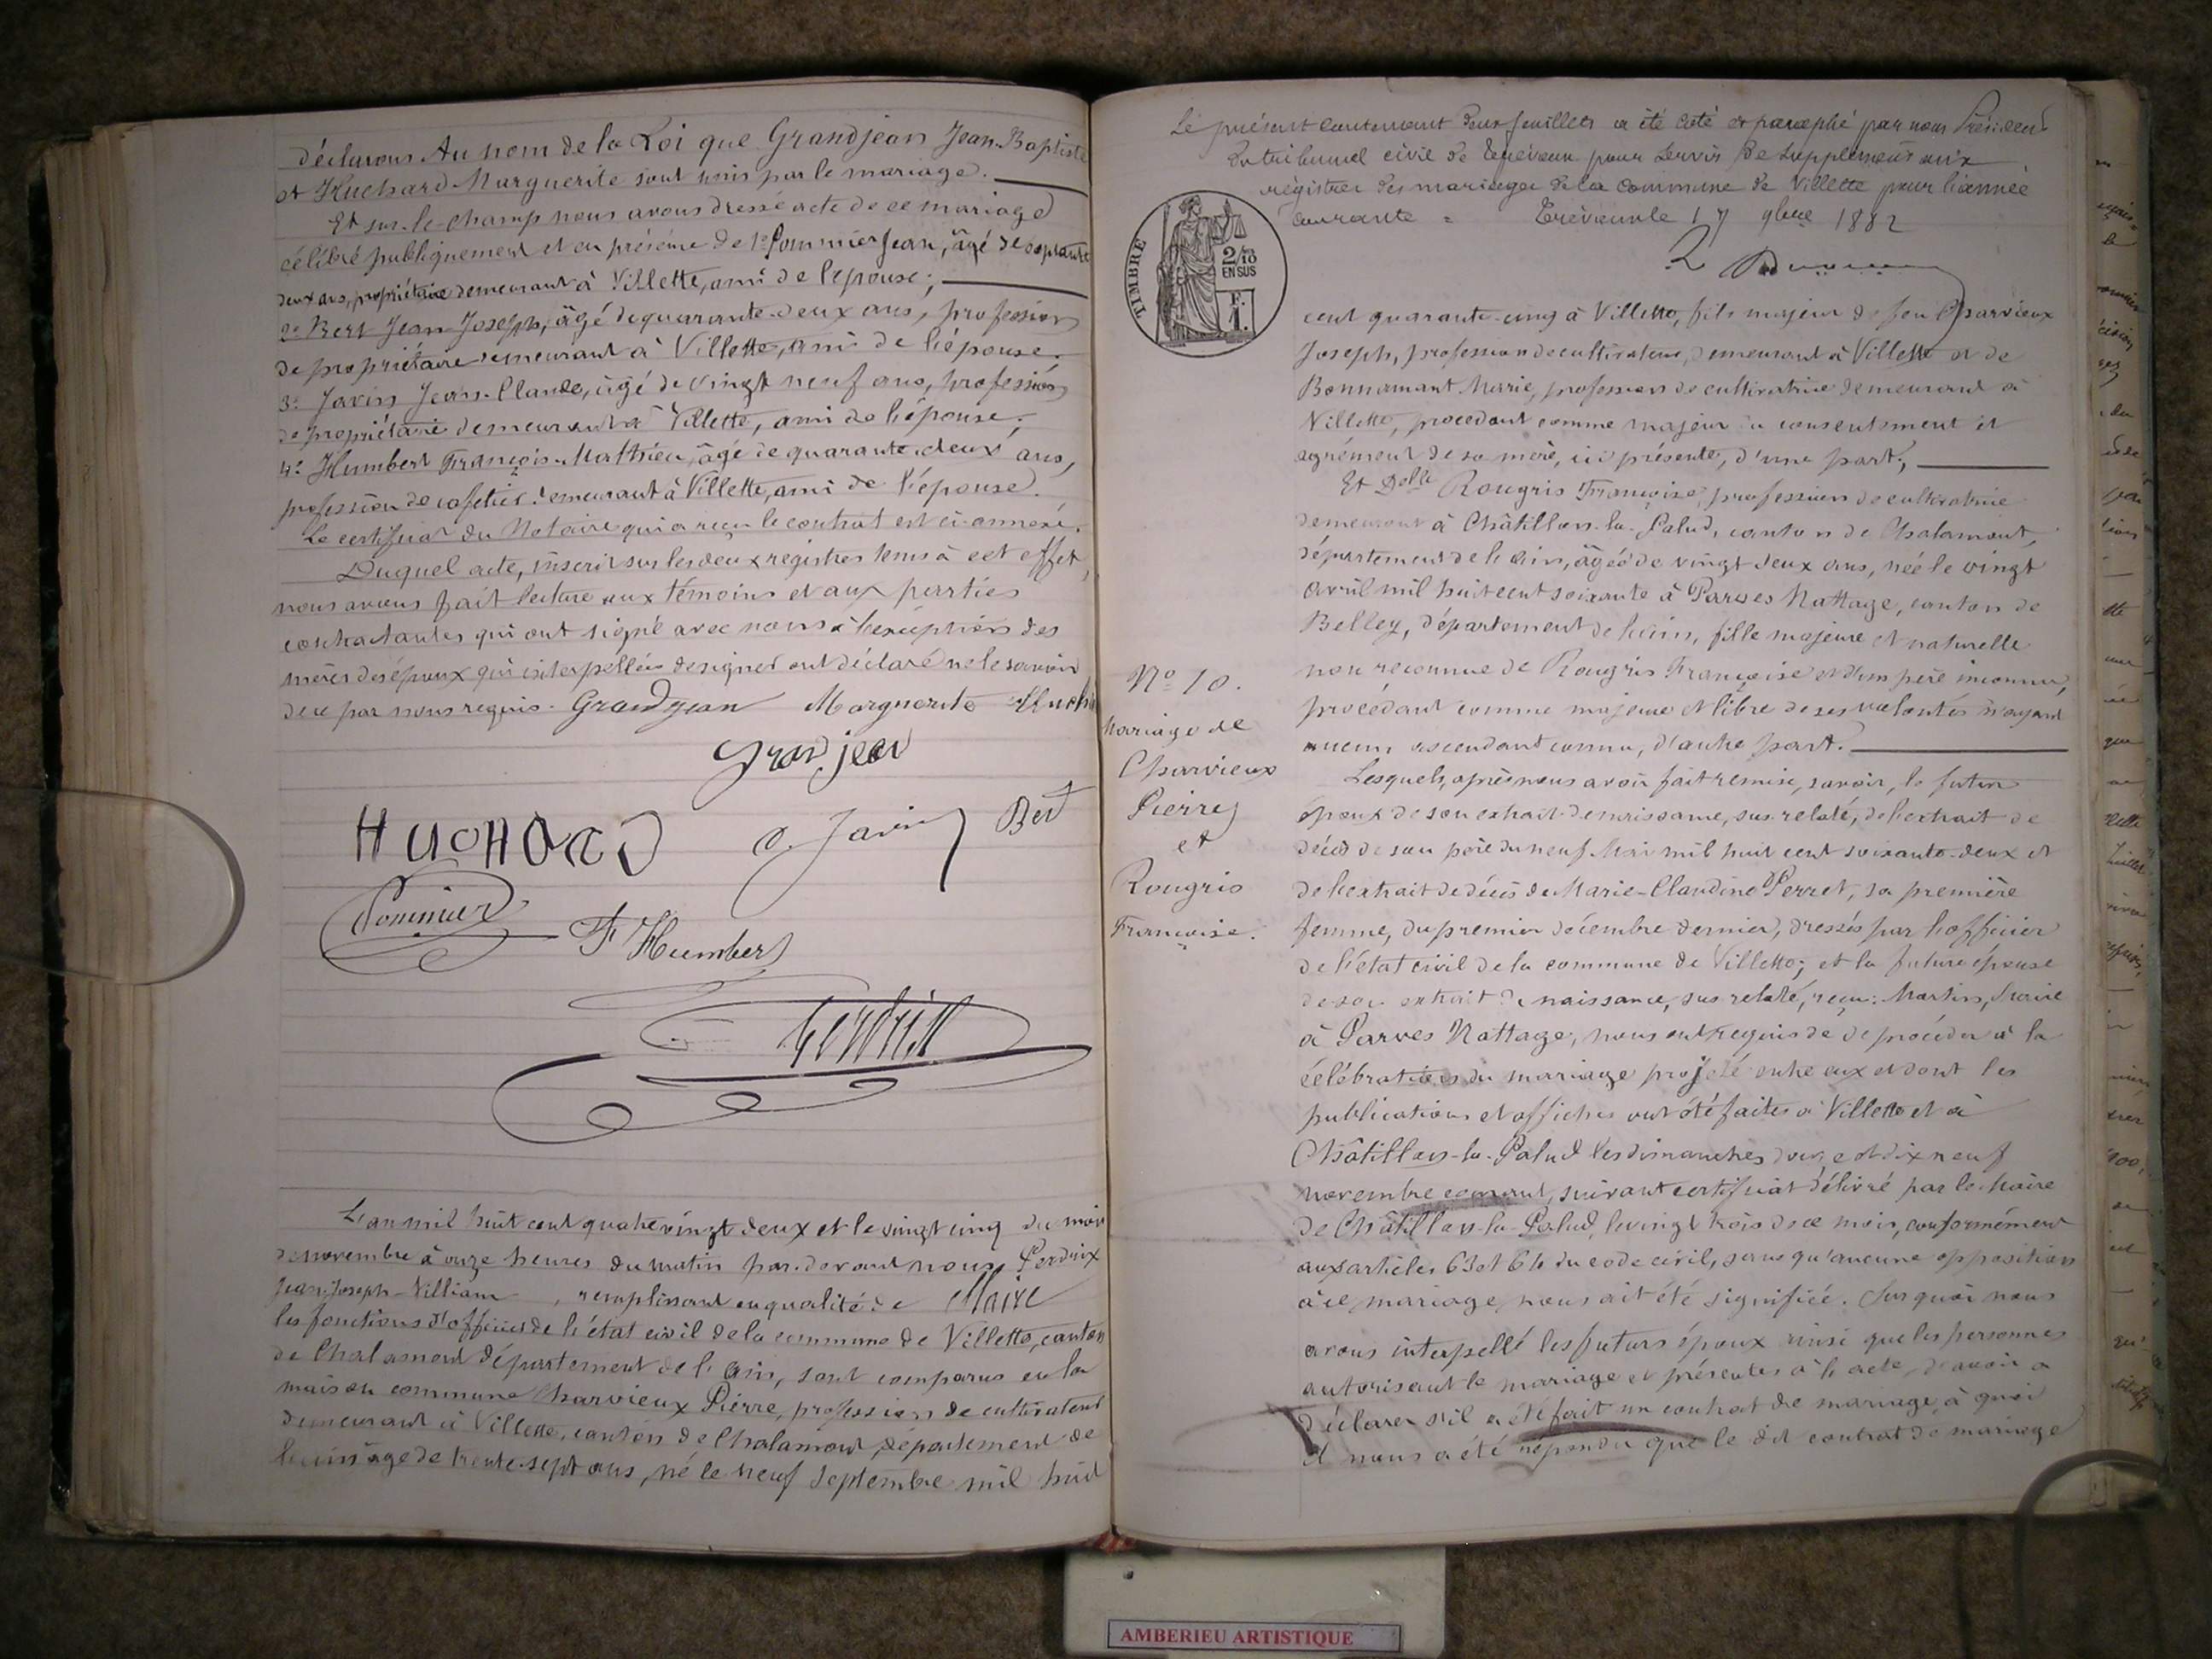 déclarons Au nom de la Loi que Grandjean Jean-Baptiste
et Huchard Marguerite sont unis par le mariage.
Et sur-le-champ nous avons dressé acte de ce mariage
célébré publiquement et en présence de 1º Pommier Jean, âgé de soixante
deux ans, propriétaire demeurant à Villette, ami de l'épouse;
2º Bert Jean Joseph, âgé de quarante-deux ans, profession
de propriétaire demeurant à Villette, ami de l'épouse.
3º Javin Jean-Claude, âgé de vingt neuf ans, profession
de propriétaire demeurant à Villette, ami de l'épouse;
4º Humbert François-Mathieu, âgé de quarante-deux ans,
profession de cafetier demeurant à Villette, ami de l'épouse.
Le certificat du Notaire qui a reçu le contrat est ci-annexé.
Duquel acte, inscrit sur les deux registres tenus à cet effet,
nous avons fait lecture aux témoins et aux parties
contractantes qui ont signé avec nous à l'exception des
mères des époux qui interpellées de signer ont déclaré ne le savoir
de ce par nous requis. Grandjean Marguerite Huchard
Grandjean
HUCHARD C. Javin Bert
Pommier
F Humbert
Perdrix
L'an mil huit cent quatre vingt deux et le vingt cinq du mois
de novembre à onze heures du matin par-devant nous, Perdrix
Jean-Joseph-Villiam, remplissant en qualité de Maire
les fonctions d'officier de l'état civil de la commune de Villette, canton
de Chalamont département de l'Ain, sont comparus en la
maison commune Charvieux Pierre, profession de cultivateur
demeurant à Villette, canton de Chalamont, département de
l'Ain âgé de trente-sept ans, né le neuf septembre mil huit
Le présent contenant deux feuillets a été coté et paraphé par nous Président
du tribunal civil de Trévoux pour servir de supplément aux
registres des mariages de la commune de Villette pour l'année
courante = Trévoux le 17 9bre 1882
2
TIMBRE
2/10
EN SUS
F.
1.
cent quarante-cinq à Villette, fils majeur de feu Charvieux
Joseph, profession de cultivateur, demeurant à Villette et de
Bonnamant Marie, profession de cultivatrice demeurant à
Villette, procédant comme majeur du consentement et
agrément de sa mère, ici présente, d'une part;
Et Delle Rougris Françoise, profession de cultivatrice
demeurant à Châtillon-la-Palud, canton de Chalamont,
département de l'Ain, âgée de vingt deux ans, née le vingt
avril mil huit cent soixante à Parves Nattage, canton de
Belley, département de l'ain, fille majeure et naturelle
non reconnue de Rougris Françoise et d'un père inconnu,
procédant comme majeure et libre de ses volontés n'ayant
aucun ascendant connu, d'autre part.
Nº 10.
Mariage de
Charvieux
Pierre
et
Rougris
Françoise.
Lesquels, après nous avoir fait remise, savoir, le futur
époux de son extrait de naissance, sus-relaté, de l'extrait de
décès de son père du neuf Mai mil huit cent soixante-deux et
de l'extrait de décès de Marie-Claudine Perret, sa première
femme, du premier décembre dernier, dressés par l'officier
de l'état civil de la commune de Villette; et la future épouse
de son extrait de naissance, sus relaté, reçu: Martin, Maire
à Parves Nattage, nous ont requis de de procéder à la
célébration du mariage projeté entre eux et dont les
publications et affiches ont été faites à Villette et à
Châtillon-la-Palud les dimanches douze et dix neuf
novembre courant, suivant certificat délivré par le Maire
de Châtillon-la-Palud, le vingt trois de ce mois, conformément
aux articles 63 et 64 du code civil, sans qu'aucune opposition
à ce mariage nous ait été signifiée. Sur quoi nous
avons interpellé les futurs époux ainsi que les personnes
autorisant le mariage et présentes à l'acte, d'avoir a
déclarer s'il a été fait un contrat de mariage, à quoi
il nous a été répondu que le dit contrat de mariage
AMBERIEU ARTISTIQUE